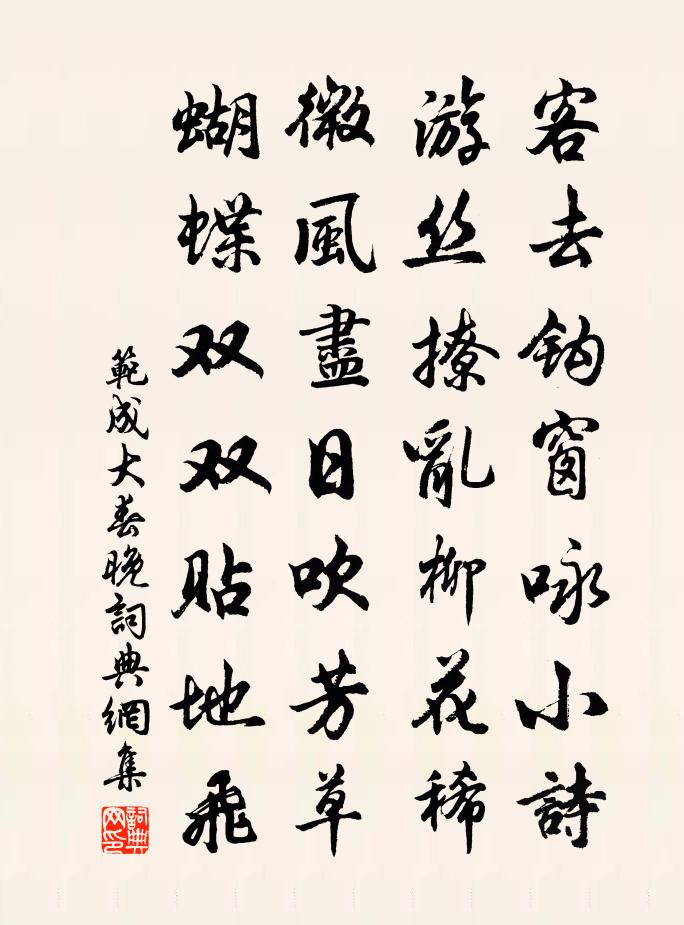 客去钩窗咏小詩
游丝撩亂柳花稀
微風盡日吹芳草
蝴蝶双双贴地飛
範成大春晚詞典網集
詞典網印